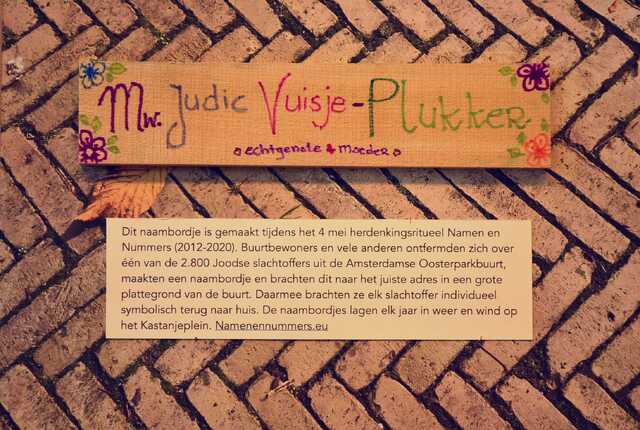 Mw. Judic Vuisje-Plukker
echtgenote & Moeder
Dit naambordje is gemaakt tijdens het 4 mei herdenkingsritueel Namen en
Nummers (2012-2020). Buurtbewoners en vele anderen ontfermden zich over
één van de 2.800 Joodse slachtoffers uit de Amsterdamse Oosterparkbuurt,
maakten een naambordje en brachten dit naar het juiste adres in een grote
plattegrond van de buurt. Daarmee brachten ze elk slachtoffer individueel
symbolisch terug naar huis. De naambordjes lagen elk jaar in weer en wind op
het Kastanjeplein. Namenennummers.eu